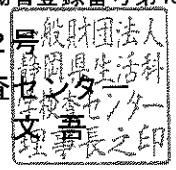 2号
査センター
文 吾
一般財団法人
静岡県生活科
学検査センター
理事長之印